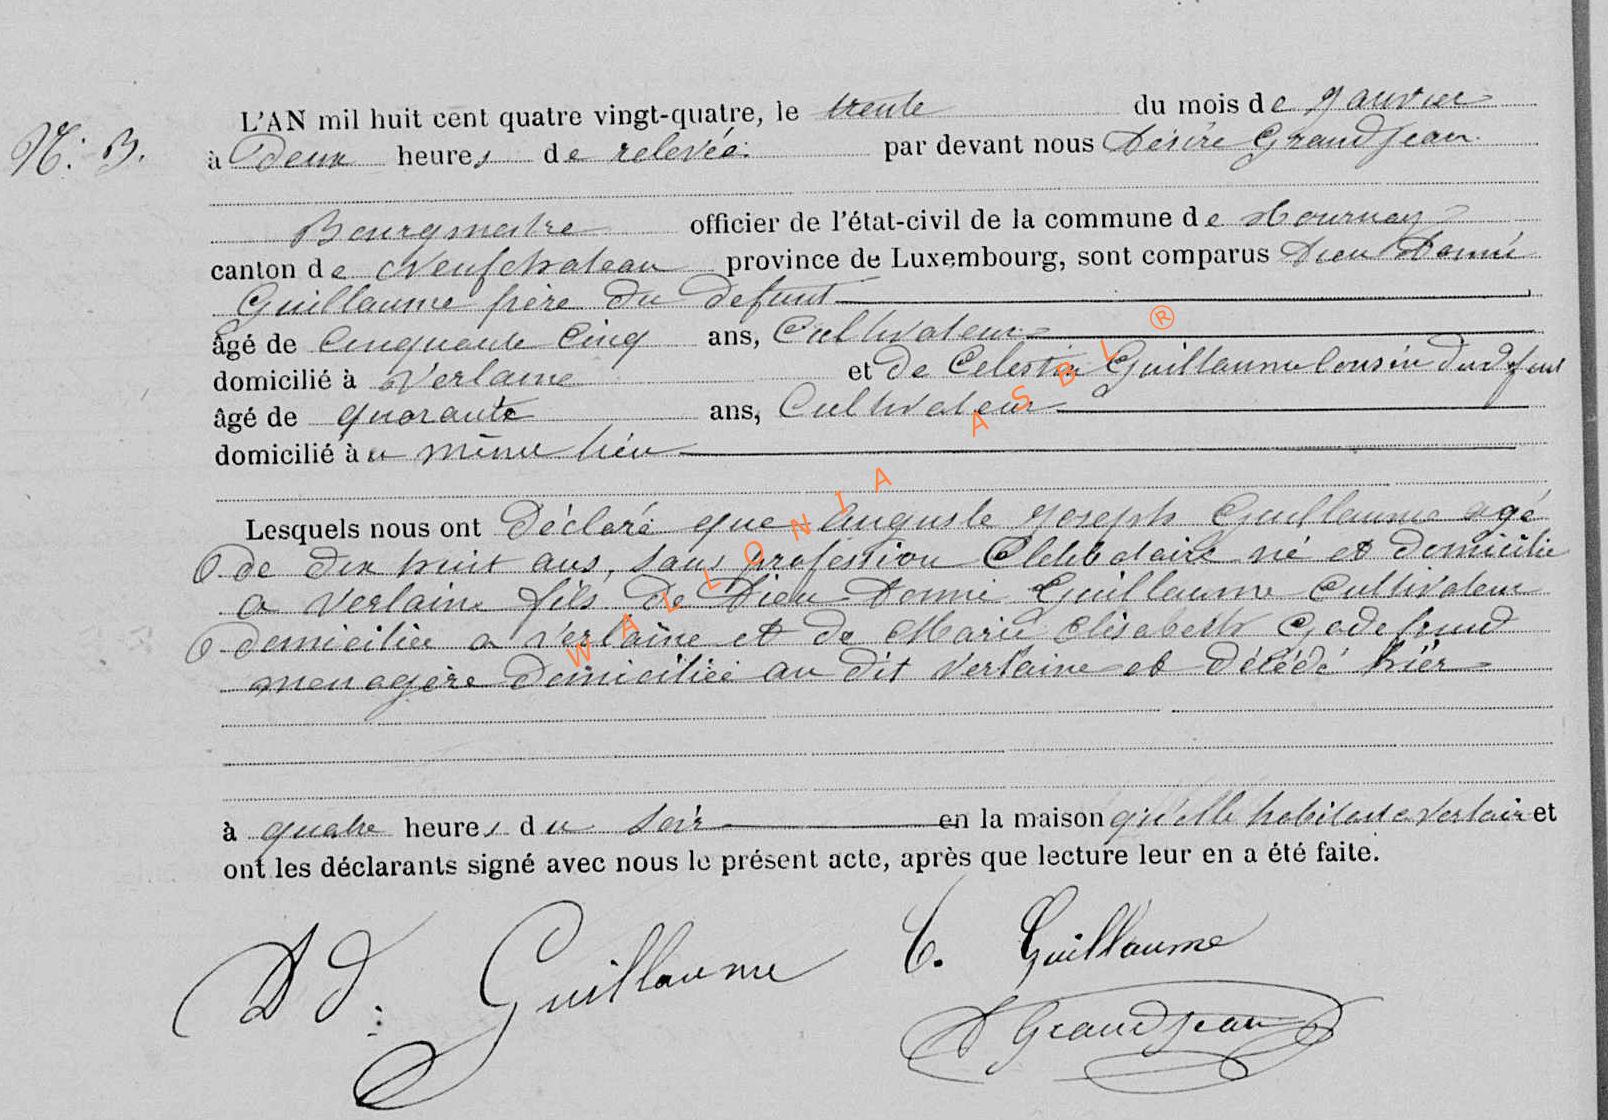 L'AN mil huit cent quatre vingt-quatre, le trente du mois de Janvier
N: 3. à Deux heures de relevée. par devant nous Désiré Grandjean
Bourgmestre officier de l'état-civil de la commune de Tournay
canton de Neufchateau province de Luxembourg, sont comparus Dieu Donné
Guillaume père du defunt
âgé de Cinquante Cinq ans, Cultivateur
domicilié à Verlaine et de Celestin Guillaume Cousin du defunt
âgé de quarante ans, Cultivateur
domicilié à u même lieu
Lesquels nous ont Déclaré que Auguste Joseph Guillaume agé
de dix huit ans, sans profession Celibataire né et domicilie
a Verlaine fils De Dieu Donné Guillaume Cultivateur
domicilie a Verlaine et de Marie Elisabeth Godefrind
menagère domiciliée au dit Verlaine et décédé hièr
à quatre heures du soir en la maison qu'elle habitait a Verlaine et
ont les déclarants signé avec nous le présent acte, après que lecture leur en a été faite.
D d. Guillaume C. Guillaume
D Grandjean
WALLONIA ASBL ®